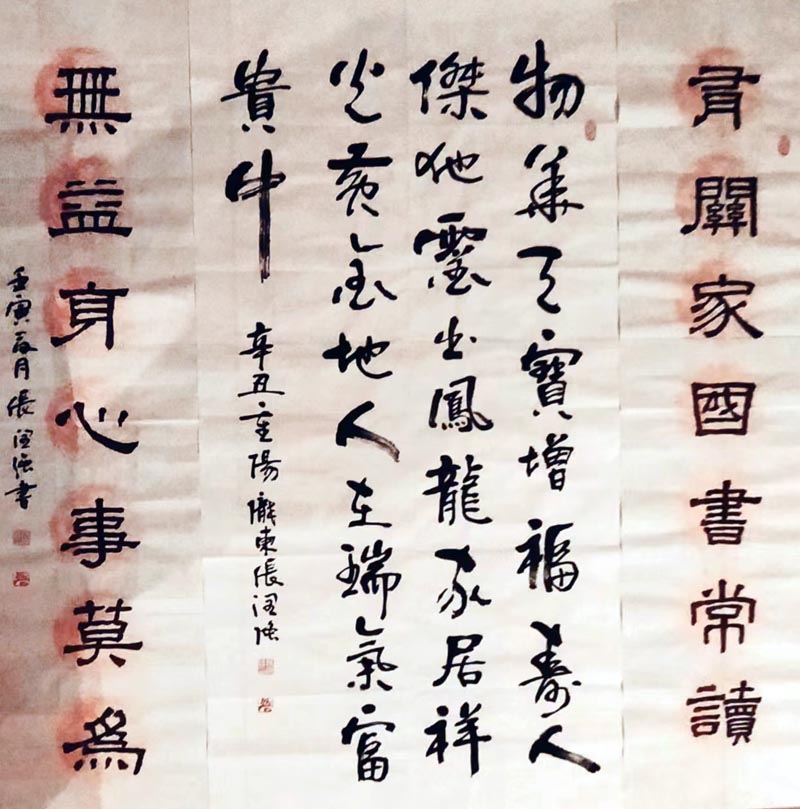 有關家國書常讀
物華天寶增福壽人
傑地靈出鳳龍家居祥
光黃金地人在瑞氣富
貴中
辛丑重陽隴東張
無益身心事莫為
壬寅月張書